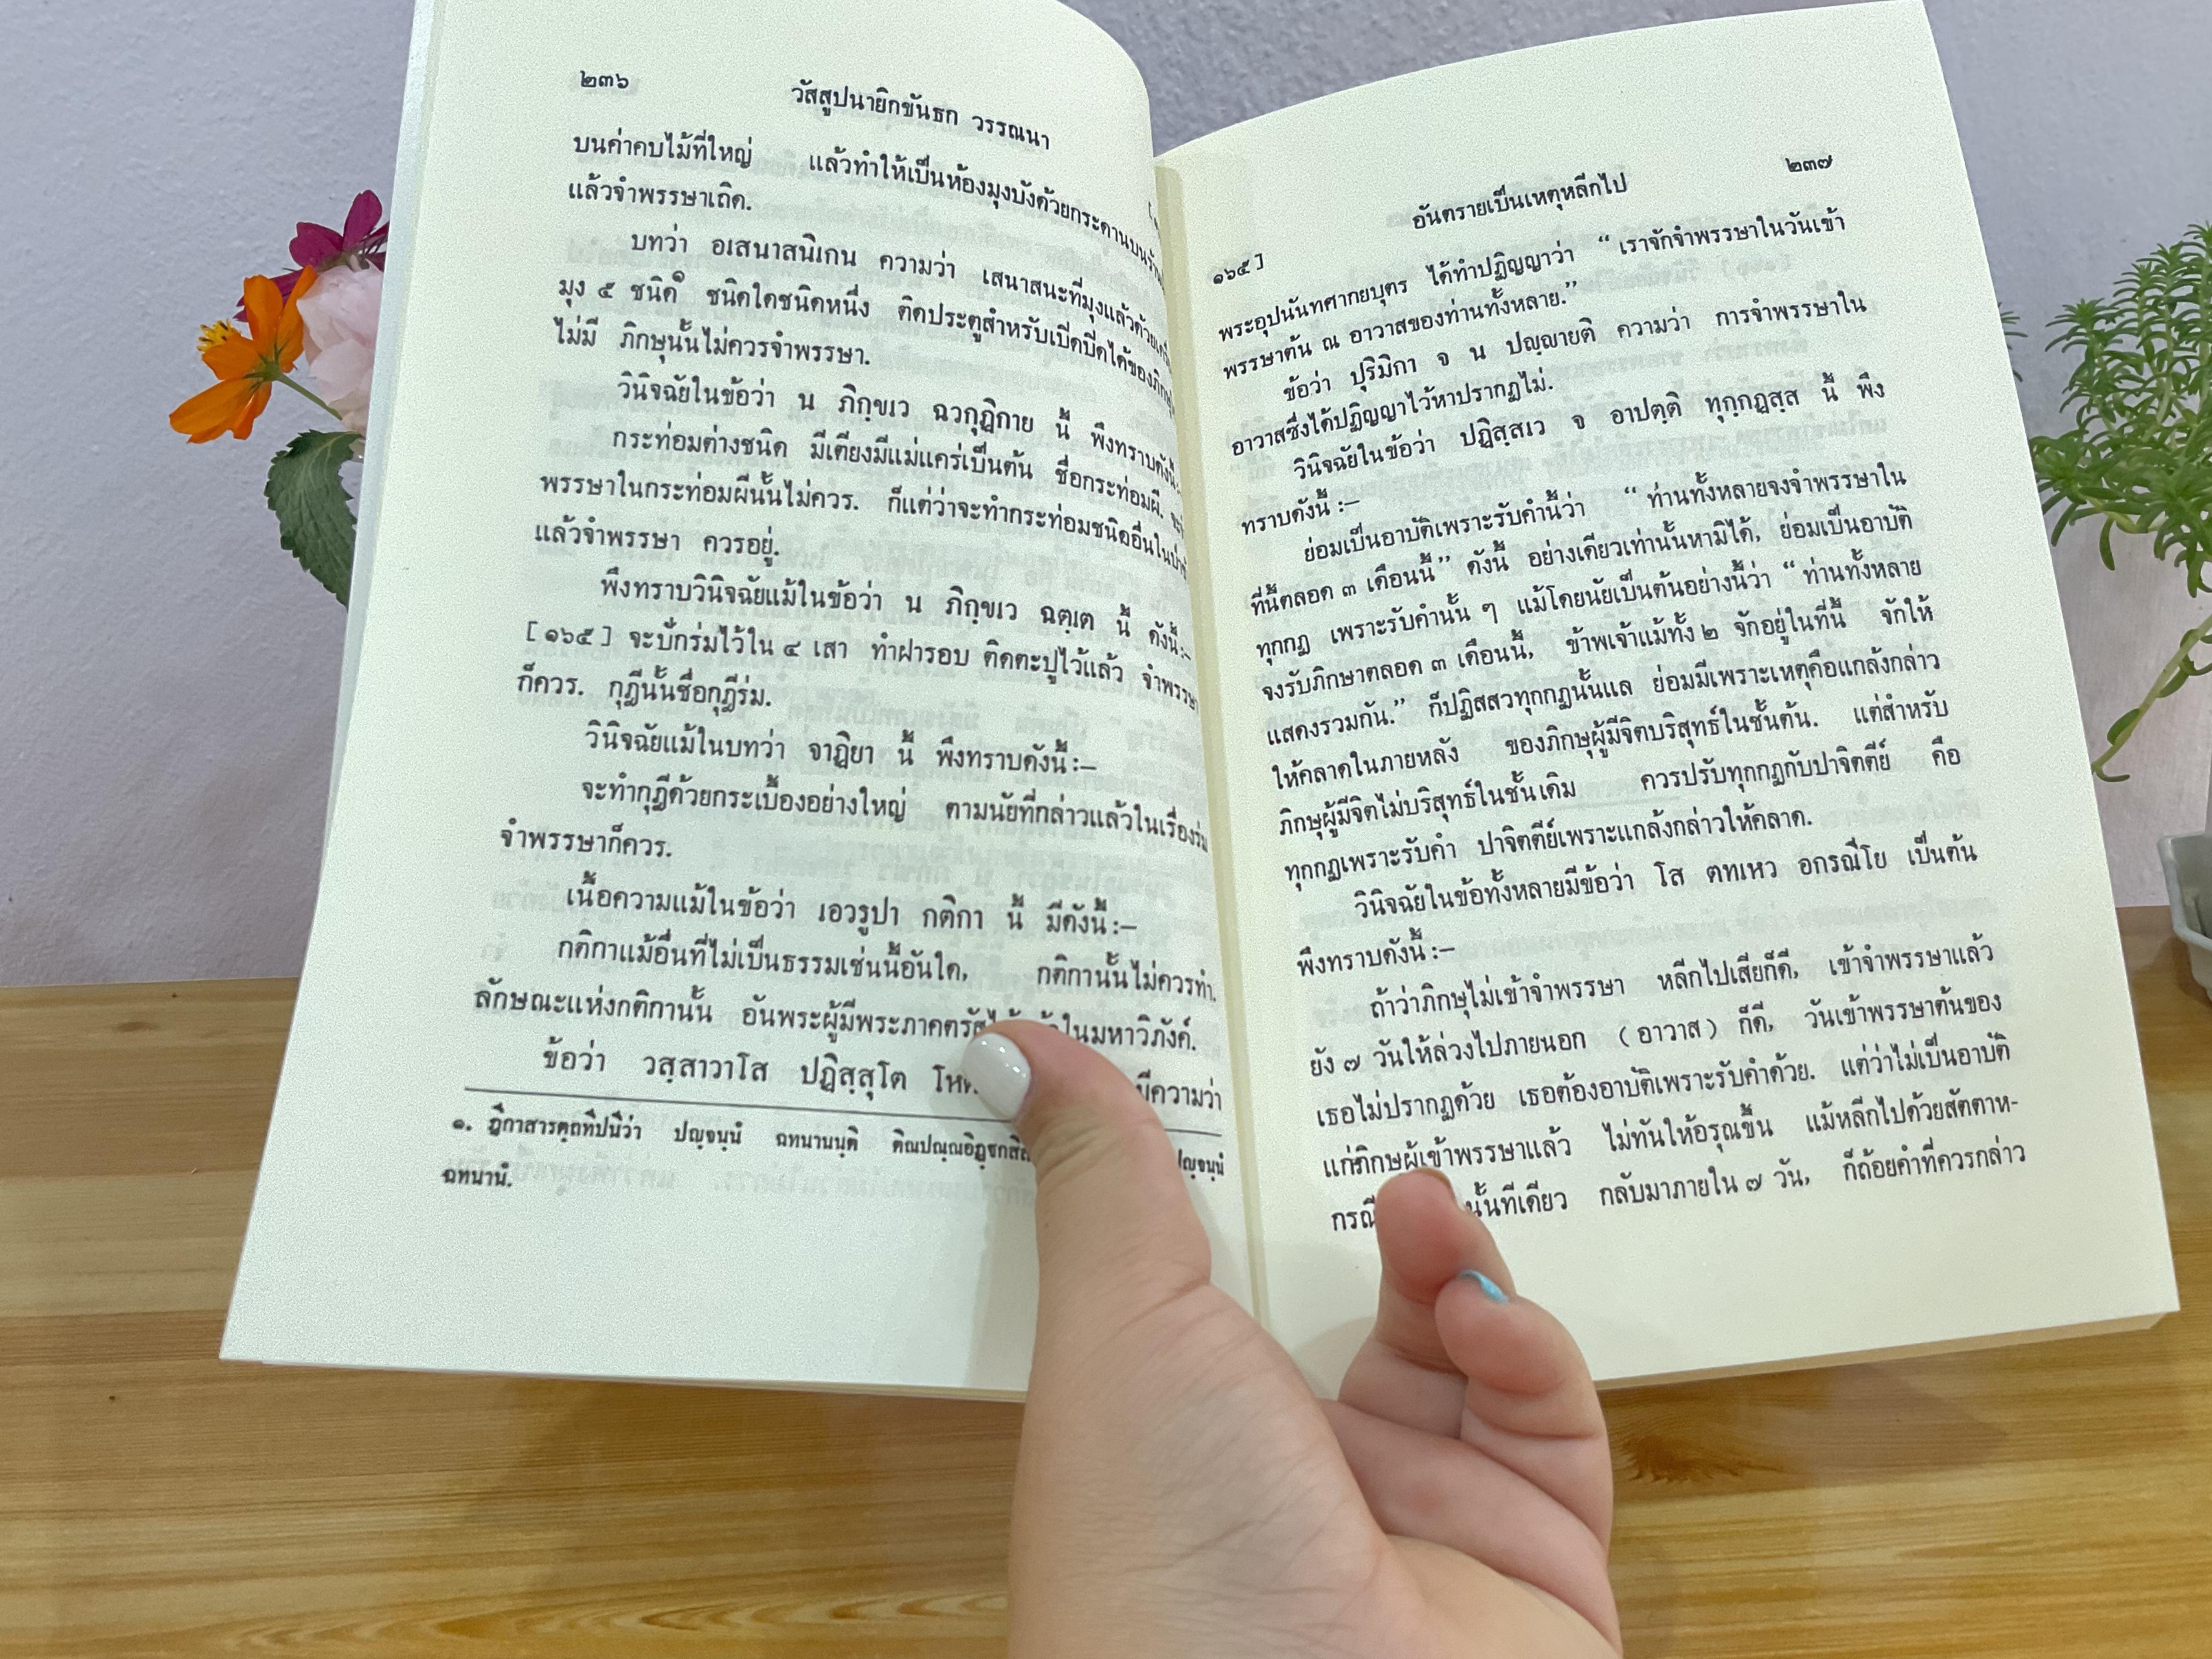 ๒๓๖
วัสสูปนายิกขันธก วรรณนา
บนค่าคบไม้ที่ใหญ่ แล้วทำให้เป็นห้องมุงบังด้วยกระดานบนร้าน
แล้วจำพรรษาเถิด.
บทว่า อเสนาสนิเกน ความว่า เสนาสนะที่มุงแล้วด้วย
มุง ๕ ชนิด๑ ชนิดใดชนิดหนึ่ง ติดประตูสำหรับเปิดปิดได้ของภิกษุ
ไม่มี ภิกษุนั้นไม่ควรจำพรรษา.
วินิจฉัยในข้อว่า น ภิกฺขเว ฉวกุฏิกาย นี้ พึงทราบดังนี้:—
กระท่อมต่างชนิด มีเตียงมีแม่แคร่เป็นต้น ชื่อกระท่อมผี.
พรรษาในกระท่อมผีนั้นไม่ควร. ก็แต่ว่าจะทำกระท่อมชนิดอื่นในป่าช้า
แล้วจำพรรษา ควรอยู่.
พึงทราบวินิจฉัยแม้ในข้อว่า น ภิกฺขเว ฉตฺเต นี้ ดังนี้:—
[๑๖๕] จะปักร่มไว้ใน ๔ เสา ทำฝารอบ ติดตะปูไว้แล้ว จำพรรษา
ก็ควร. กุฎีนั้นชื่อกุฎีร่ม.
วินิจฉัยแม้ในบทว่า จาฏิยา นี้ พึงทราบดังนี้:—
จะทำกุฎีด้วยกระเบื้องอย่างใหญ่ ตามนัยที่กล่าวแล้วในเรื่องร่ม
จำพรรษาก็ควร.
เนื้อความแม้ในข้อว่า เอวรูปา กติกา นี้ มีดังนี้:—
กติกาแม้อื่นที่ไม่เป็นธรรมเช่นนี้อันใด, กติกานั้นไม่ควรทำ.
ลักษณะแห่งกติกานั้น อันพระผู้มีพระภาคตรัสไว้แล้วในมหาวิภังค์.
ข้อว่า วสฺสาวาโส ปฏิสฺสุโต มีความว่า
๑. ฎีกาสารตฺถทีปนีว่า ปญฺจนฺนํ ฉทนานนฺติ ปญฺจนฺนํ
ฉทนานํ.
๒๓๗
อันตรายเป็นเหตุหลีกไป
๑๖๕]
พระอุปนันทศากยบุตร ได้ทำปฏิญญาว่า “ เราจักจำพรรษาในวันเข้า
พรรษาต้น ณ อาวาสของท่านทั้งหลาย.”
ข้อว่า ปุริมิกา จ น ปญฺญายติ ความว่า การจำพรรษาใน
อาวาสซึ่งได้ปฏิญญาไว้หาปรากฏไม่.
วินิจฉัยในข้อว่า ปฏิสฺสเว จ อาปตฺติ ทุกฺกฏสฺส นี้ พึง
ทราบดังนี้ :—
ย่อมเป็นอาบัติเพราะรับคำนี้ว่า “ ท่านทั้งหลายจงจำพรรษาใน
ที่นี้ตลอด ๓ เดือนนี้” ดังนี้ อย่างเดียวเท่านั้นหามิได้, ย่อมเป็นอาบัติ
ทุกกฏ เพราะรับคำนั้น ๆ แม้โดยนัยเป็นต้นอย่างนี้ว่า “ ท่านทั้งหลาย
จงรับภิกษาตลอด ๓ เดือนนี้, ข้าพเจ้าแม้ทั้ง ๒ จักอยู่ในที่นี้ จักให้
แสดงรวมกัน.” ก็ปฏิสสวทุกกฏนั้นแล ย่อมมีเพราะเหตุคือแกล้งกล่าว
ให้คลาดในภายหลัง ของภิกษุผู้มีจิตบริสุทธ์ในชั้นต้น. แต่สำหรับ
ภิกษุผู้มีจิตไม่บริสุทธ์ในชั้นเดิม ควรปรับทุกกฏกับปาจิตตีย์ คือ
ทุกกฏเพราะรับคำ ปาจิตตีย์เพราะแกล้งกล่าวให้คลาด.
วินิจฉัยในข้อทั้งหลายมีข้อว่า โส ตทเหว อกรณีโย เป็นต้น
พึงทราบดังนี้ :—
ถ้าว่าภิกษุไม่เข้าจำพรรษา หลีกไปเสียก็ดี, เข้าจำพรรษาแล้ว
ยัง ๗ วันให้ล่วงไปภายนอก (อาวาส) ก็ดี, วันเข้าพรรษาต้นของ
เธอไม่ปรากฏด้วย เธอต้องอาบัติเพราะรับคำด้วย. แต่ว่าไม่เป็นอาบัติ
แก่ภิกษุผู้เข้าพรรษาแล้ว ไม่ทันให้อรุณขึ้น แม้หลีกไปด้วยสัตตาห-
นั้นทีเดียว กลับมาภายใน ๗ วัน, ก็ถ้อยคำที่ควรกล่าว